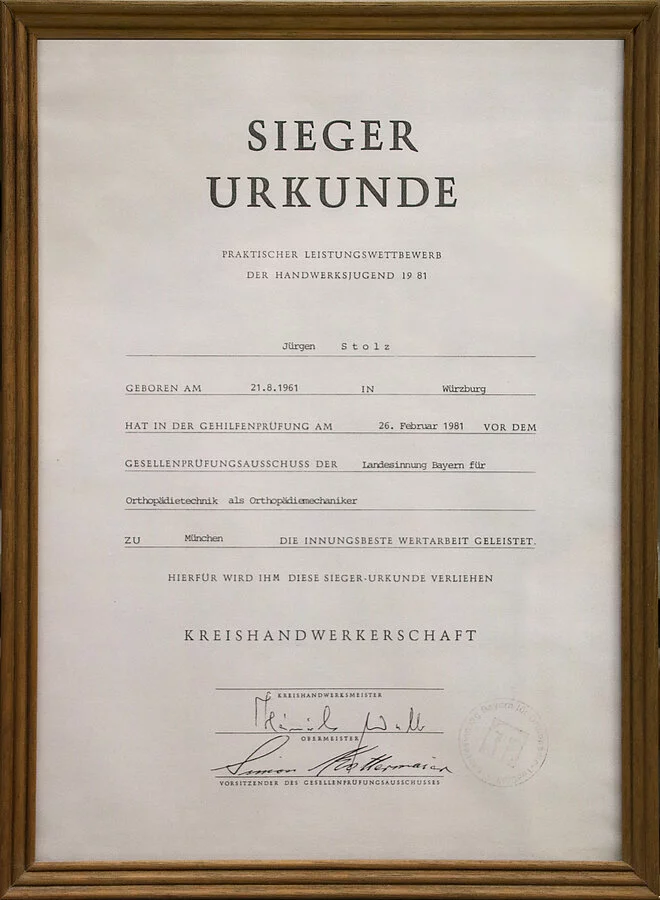 SIEGER
URKUNDE
PRAKTISCHER LEISTUNGSWETTBEWERB
DER HANDWERKSJUGEND 19 81
Jürgen Stolz
GEBOREN AM 21.8.1961 IN Würzburg
HAT IN DER GEHILFENPRÜFUNG AM 26. Februar 1981 VOR DEM
GESELLENPRÜFUNGSAUSSCHUSS DER Landesinnung Bayern für
Orthopädietechnik als Orthopädiemechaniker
ZU München DIE INNUNGSBESTE WERTARBEIT GELEISTET.
HIERFÜR WIRD IHM DIESE SIEGER-URKUNDE VERLIEHEN
KREISHANDWERKERSCHAFT
KREISHANDWERKSMEISTER
OBERMEISTER
Simon
VORSITZENDER DES GESELLENPRÜFUNGSAUSSCHUSSES